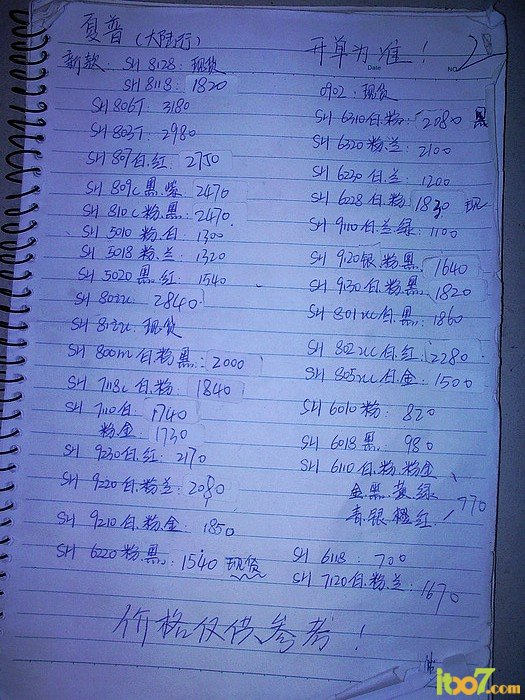 夏普(大陆行) 开单为准!
Date
NO.
2
新款: SH 8128: 现货
SH 8118: 1820
SH 806T: 3180
SH 803T: 2980
SH 807白.红: 2750
SH 809c黑.紫: 2470
SH 810c粉.黑: 2470
SH 5010粉.白: 1300
SH 5018粉.兰: 1320
SH 5020黑.红: 1540
SH 802uc: 2840
SH 812uc: 现货
SH 800m白粉黑: 2000
SH 7118c白.粉: 1840
SH 7110白: 1740
粉金: 1730
SH 9230白.红: 2170
SH 9220白.粉兰: 2080
SH 9210白.粉.金: 1850
SH 6220粉.黑: 1540 现货
0902: 现货
SH 6310白.粉: 2080 黑
SH 6320粉.兰: 2100
SH 6230白.兰: 1200
SH 6228白.粉: 1830 现
SH 9110白.兰绿: 1100
SH 9120银.粉黑: 1640
SH 9130白.粉黑: 1820
SH 801uc白.黑: 1860
SH 802uc白.红: 2280
SH 805uc白.金: 1500
SH 6010粉: 820
SH 6018黑: 980
SH 6110白.粉.粉金
金黑.黄.绿
青.银.橙.红 770
SH 6118: 700
SH 7120白.粉.兰: 1670
价格仅供参考!
itbo7.com